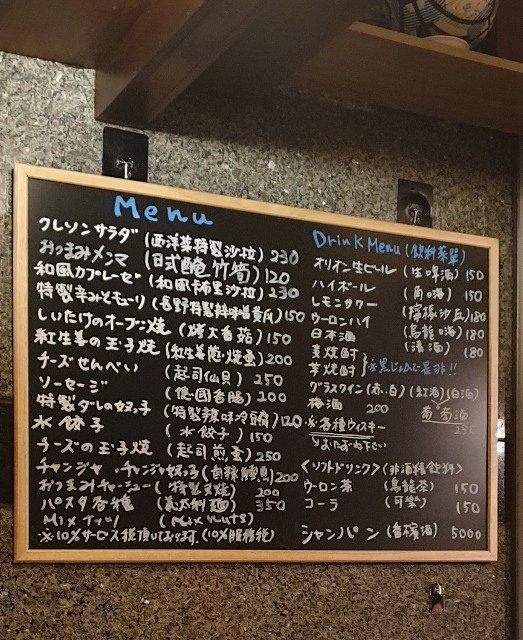 Menu
クレソンサラダ (西洋菜特製沙拉) 230
おつまみメンマ (日式醃竹筍) 120
和風カプレーゼ (和風卡布里沙拉) 230
特製辛みそきゅーり 150
しいたけのオーブン焼 (烤大香菇) 150
紅生姜の玉子焼 (紅生薑煎蛋) 200
チーズせんべい (起司仙貝) 250
ソーセージ (德國香腸) 200
特製ダレの奴っ子 (特製辣味冷豆腐) 120
水餃子 (水餃子) 150
チーズの玉子焼 (起司煎蛋) 250
チャンジャ・チャンジャ奴っ子 200
おつまみチャーシュー (特製叉燒) 200
パスタ各種 (義大利麵) 350
Mixナッツ (Mix nuts)
※10%サービス税頂いております。(10%服務稅)
Drink Menu (飲料菜單)
オリオン生ビール (生啤酒) 150
ハイボール (角嗨) 150
レモンサワー (檸檬沙瓦) 180
ウーロンハイ (烏龍嗨) 180
日本酒 (清酒) 180
麦焼酎
芋焼酎
グラスワイン (赤.白) (紅酒)(白酒)
梅酒 200 葡萄酒
250
※各種ウィスキー
<ソフトドリンク> (非酒精飲料)
ウーロン茶 (烏龍茶) 150
コーラ (可樂) 150
シャンパン (香檳酒) 5000